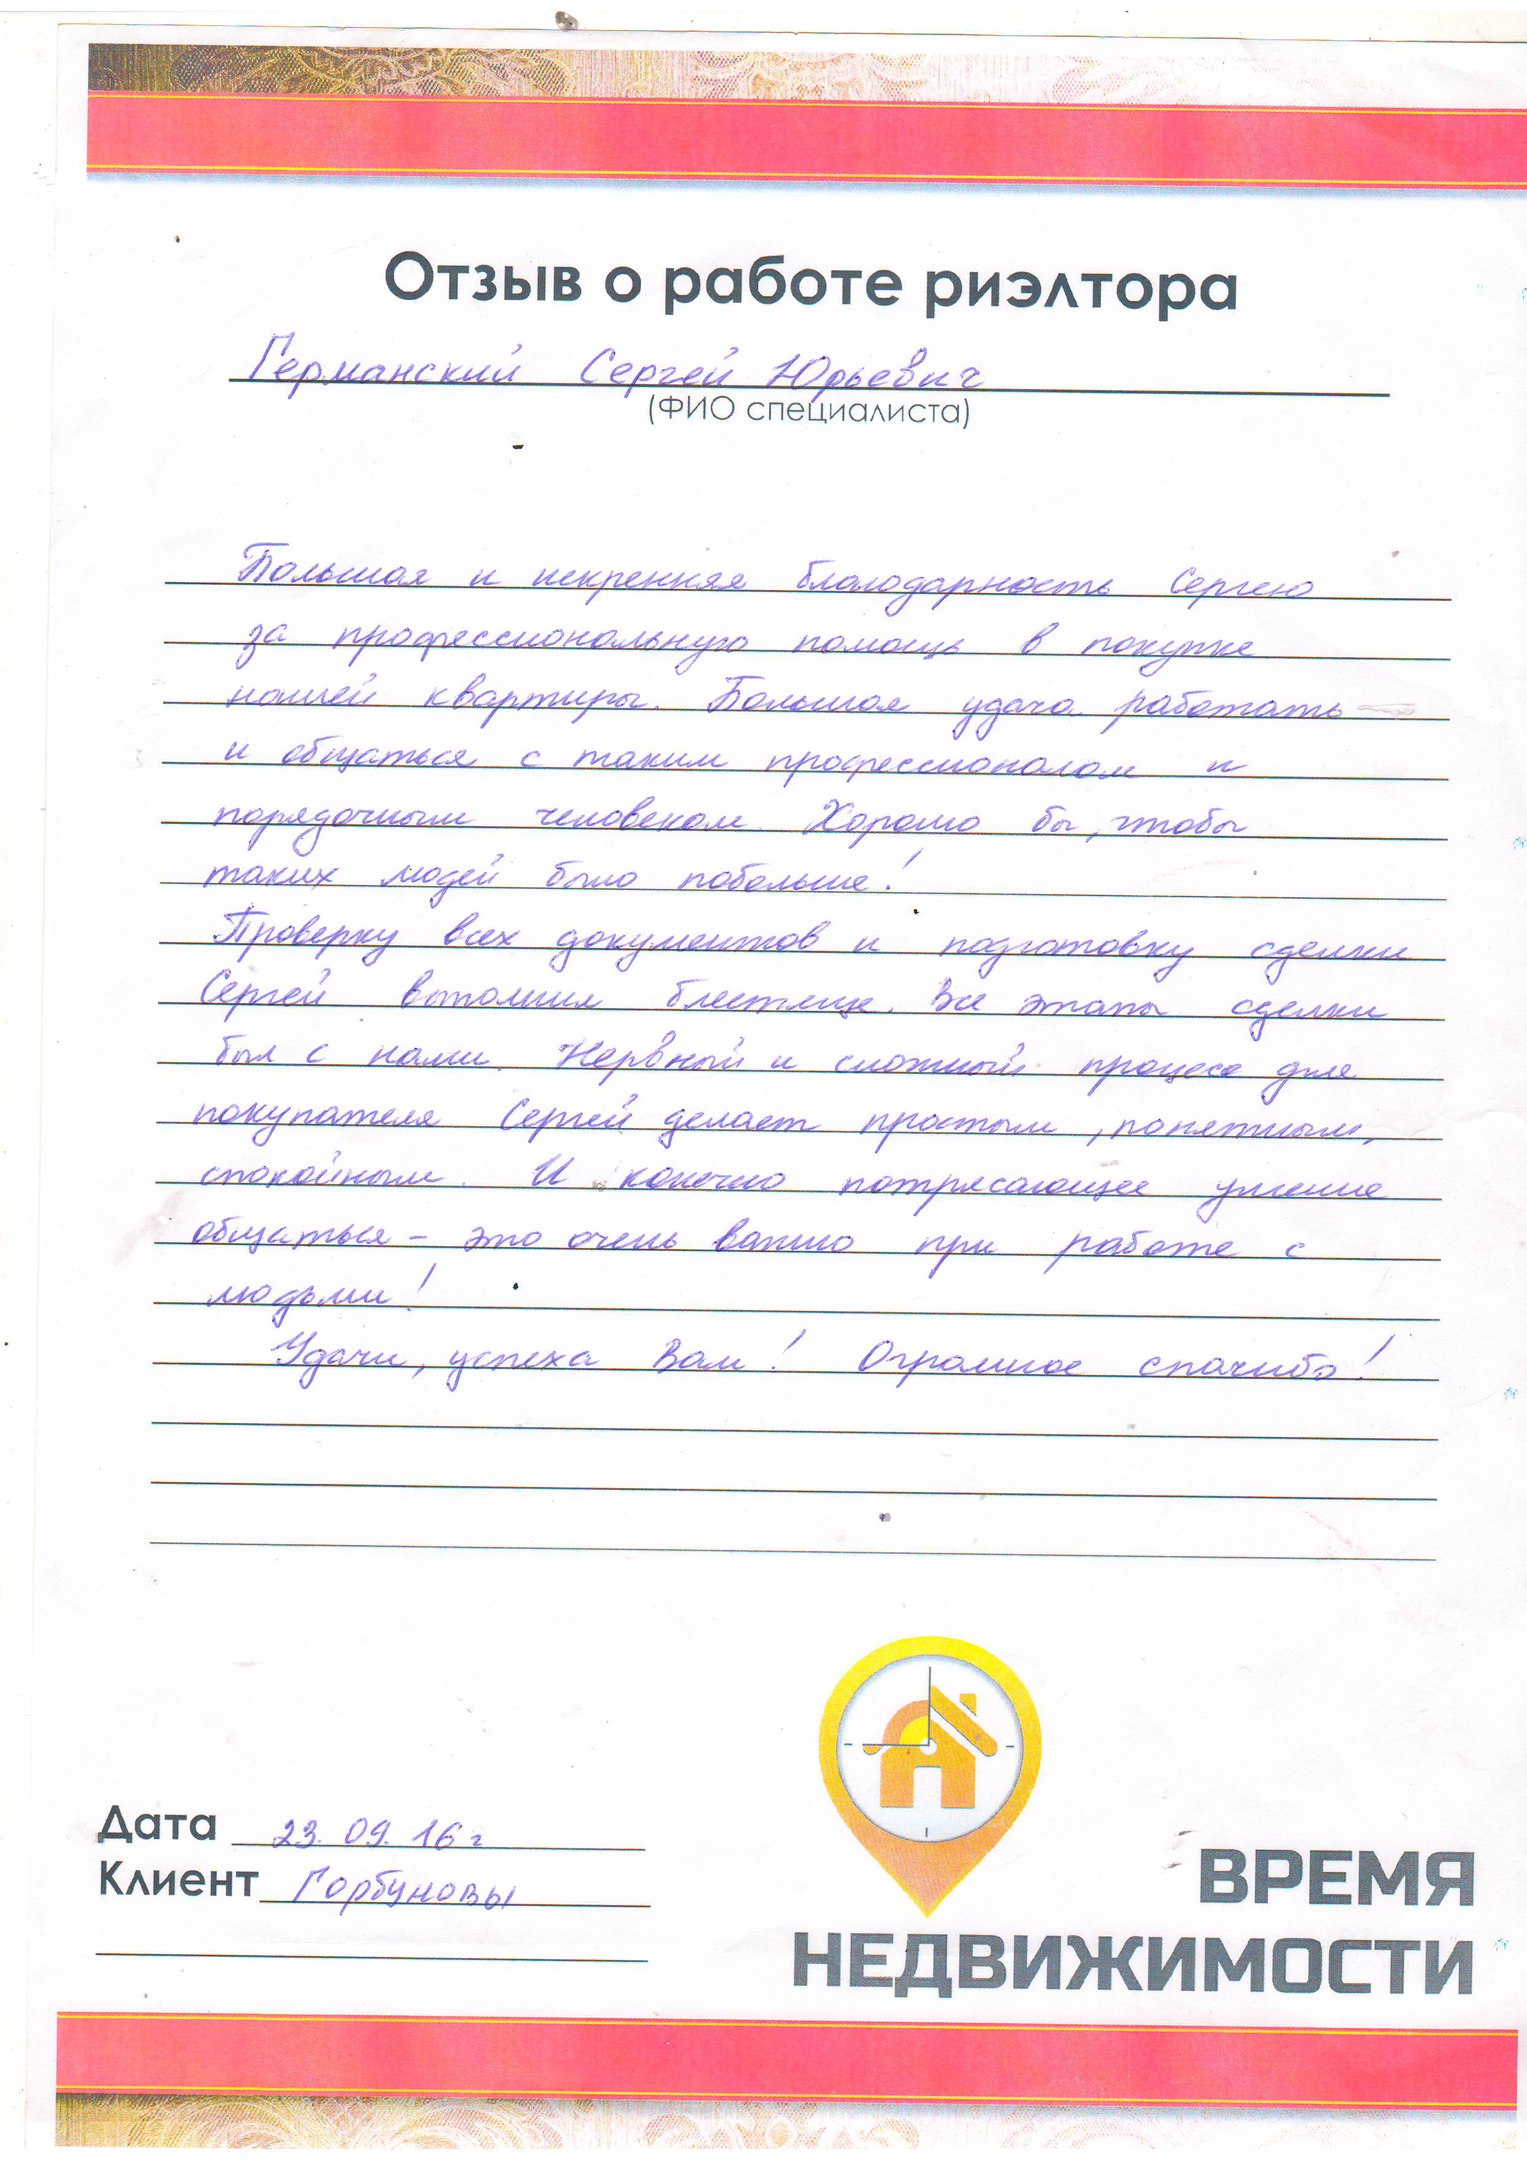 Отзыв о работе риэлтора
Германский Сергей Юрьевич
(ФИО специалиста)
Большая и искренняя благодарность Сергею
за профессиональную помощь в покупке
нашей квартиры. Большая удача работать
и общаться с таким профессионалом и
порядочным человеком. Хорошо бы, чтобы
таких людей было побольше!
Проверку всех документов и подготовку сделки
Сергей выполнил блестяще. Все этапы сделки
был с нами. Нервный и сложный процесс для
покупателя Сергей делает простым, понятным,
спокойным. И конечно потрясающее умение
общаться - это очень важно при работе с
людьми!
Удачи, успеха Вам! Огромное спасибо!
Дата 23.09.16 г
Клиент Горбуновы
ВРЕМЯ
НЕДВИЖИМОСТИ